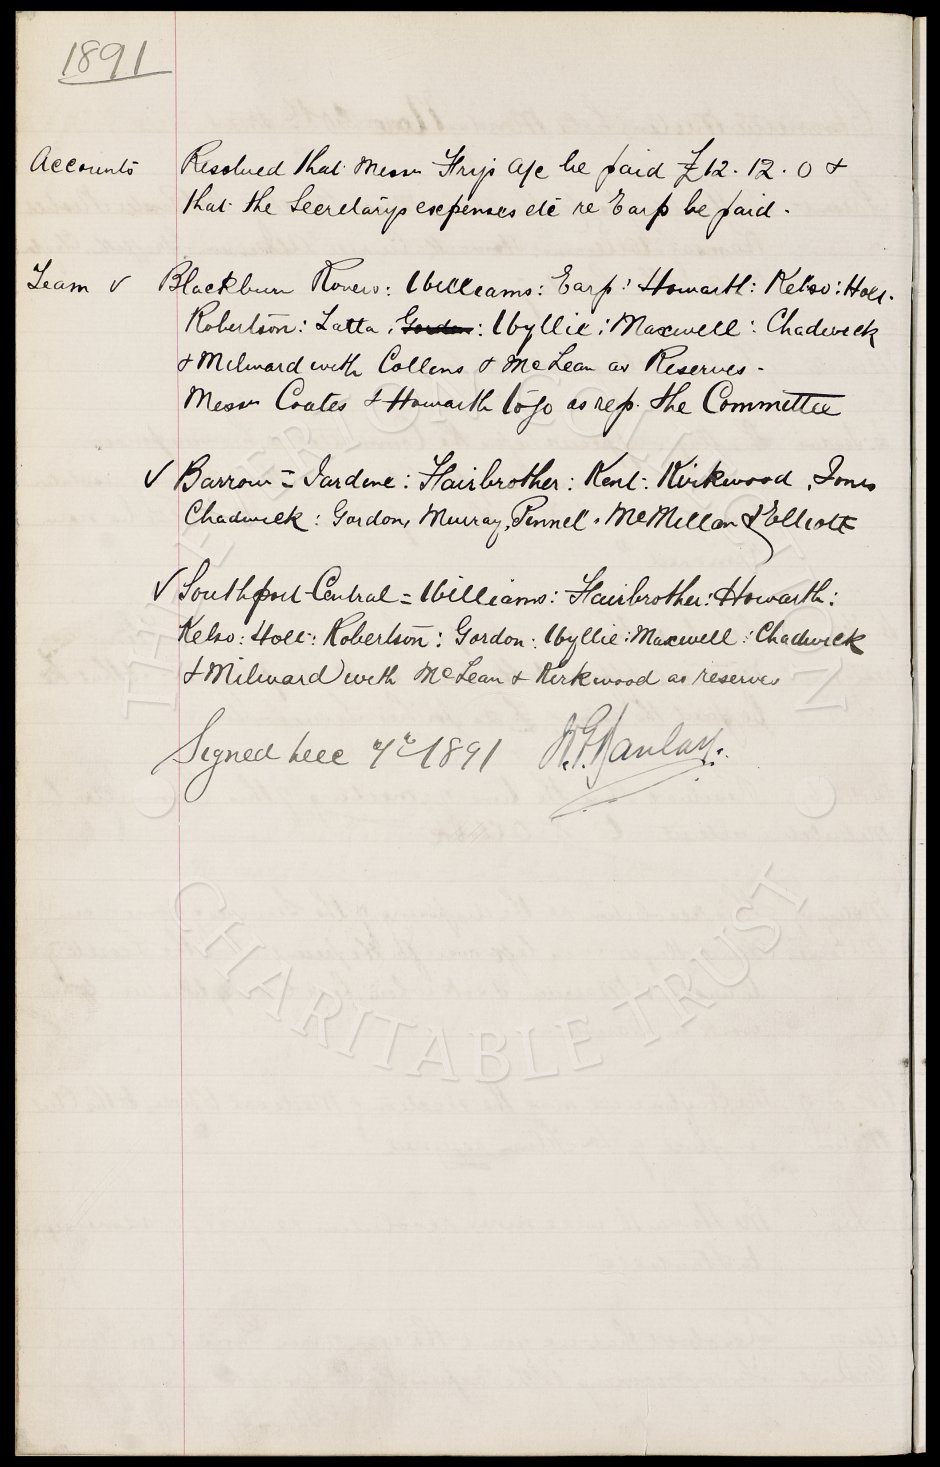 1891
Accounts Resolved that Messrs Frys a/c be paid £12.12.0 &
that the Secretarys expenses etc re Earp be paid.
Team v Blackburn Rovers: Williams: Earp: Howarth: Kelso: Holt.
Robertson: Latta: Gordon: Wyllie: Maxwell: Chadwick
& Milward with Collins & McLean as Reserves.
Messrs Coates & Howarth to go as rep. the Committee
✓ Barrow = Jardine: Fairbrother: Kent: Kirkwood, Jones
Chadwick: Gordon, Murray, Pennell, McMillan & Elliott
✓ Southport Central = Williams: Fairbrother: Howarth:
Kelso: Holt: Robertson: Gordon: Wyllie: Maxwell: Chadwick
& Milward with McLean & Kirkwood as reserves
Signed Dec 7th 1891
THE EVERTON COLLECTION
CHARITABLE TRUST